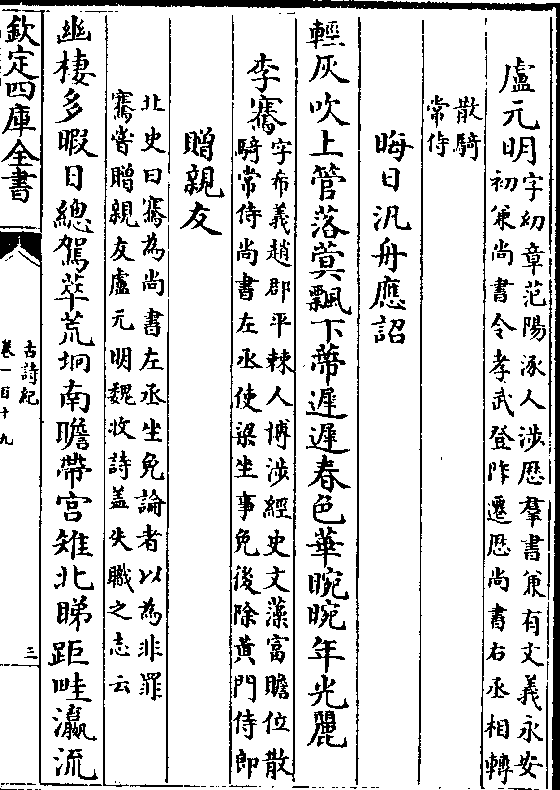 盧元明字幼章范陽涿人涉歷羣書兼有文義永安
初兼尚書令孝武登阼遷歷尚書右丞相轉
散騎
常侍
晦日汎舟應詔
輕灰吹上管落蓂飄下蔕遲遲春色華晼晼年光麗
李騫字希義趙郡平棘人博涉經史文藻富贍位散
騎常侍尚書左丞使梁坐事免後除黄門侍郎
贈親友
北史曰騫為尚書左丞坐免論者以為非罪
騫嘗贈親友盧元明魏收詩蓋失職之志云
幽棲多暇日總駕萃荒坰南瞻帶宫雉北睇距畦瀛流
欽定四庫全書
古詩紀
卷一百十九
三